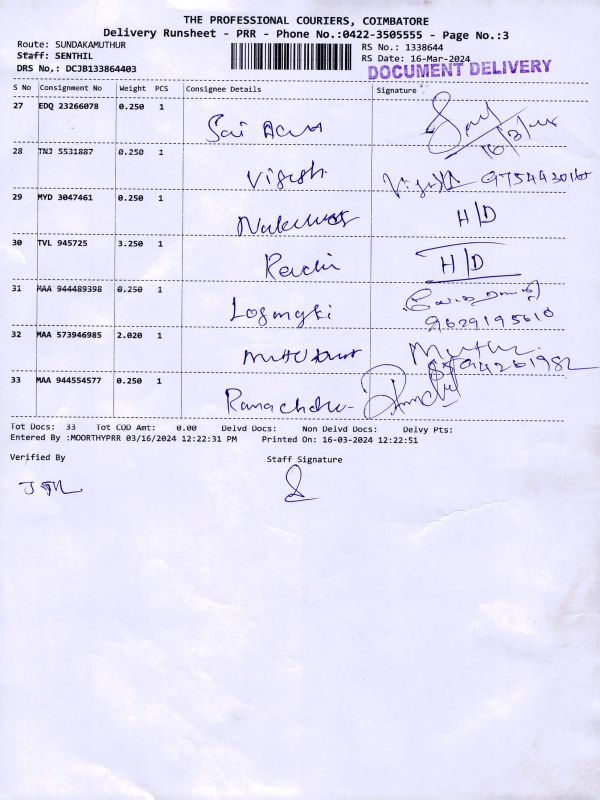 THE PROFESSIONAL COURIERS, COIMBATORE
Delivery Runsheet - PRR - Phone No.:0422-3505555 - Page No.:3
Route: SUNDAKAMUTHUR
RS No.: 1338644
Staff: SENTHIL
RS Date: 16-Mar-2024
DRS No,: DCJB133864403
DOCUMENT DELIVERY
S No Consignment No Weight PCS Consignee Details Signature
27 EDQ 23266078 0.250 1
Sai
28 TNJ 5531887 0.250 1
Vignesh
29 MYD 3047461 0.250 1
H/D
30 TVL 945725 3.250 1
H/D
31 MAA 944489398 0.250 1
9629195610
32 MAA 573946985 2.020 1
Muthu
33 MAA 944554577 0.250 1
Tot Docs: 33 Tot COD Amt: 0.00 Delvd Docs: Non Delvd Docs: Delvy Pts:
Entered By :MOORTHYPRR 03/16/2024 12:22:31 PM Printed On: 16-03-2024 12:22:51
Verified By Staff Signature